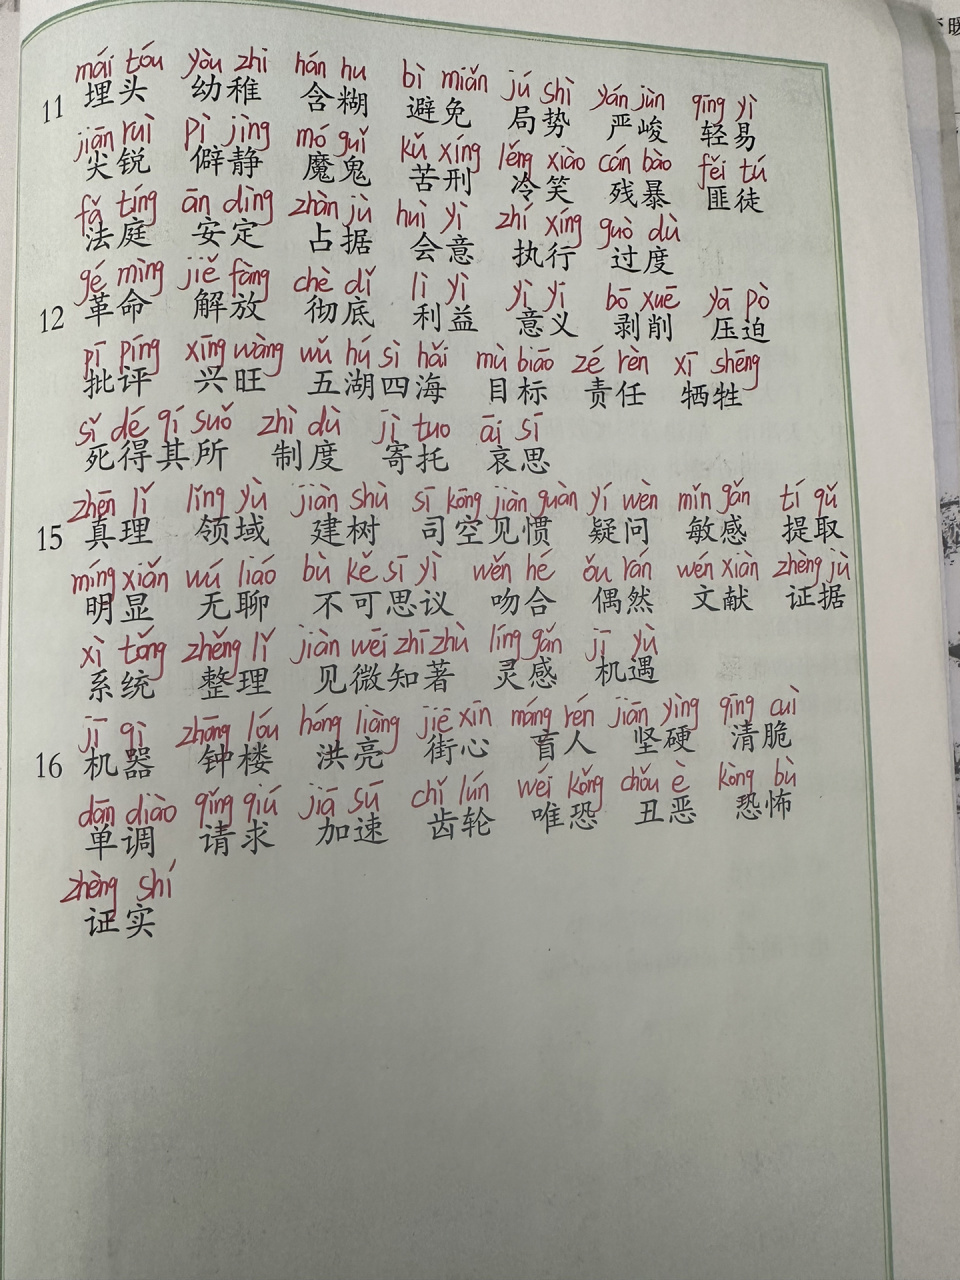 暖
mái tóu yòu zhì hán hu bì miǎn jú shì yán jùn qīng yì
11 埋头 幼稚 含糊 避免 局势 严峻 轻易
jiān ruì pì jìng mó guǐ kǔ xíng lěng xiào cán bào fěi tú
尖锐 僻静 魔鬼 苦刑 冷笑 残暴 匪徒
fǎ tíng ān dìng zhàn jù huì yì zhí xíng guò dù
法庭 安定 占据 会意 执行 过度
gé mìng jiě fàng chè dǐ lì yì yì yì bō xuē yā pò
12 革命 解放 彻底 利益 意义 剥削 压迫
pī píng xīng wàng wǔ hú sì hǎi mù biāo zé rèn xī shēng
批评 兴旺 五湖四海 目标 责任 牺牲
sǐ dé qí suǒ zhì dù jì tuo āi sī
死得其所 制度 寄托 哀思
zhēn lǐ lǐng yù jiàn shù sī kōng jiàn guàn yí wèn mǐn gǎn tí qǔ
15 真理 领域 建树 司空见惯 疑问 敏感 提取
míng xiǎn wú liáo bù kě sī yì wěn hé ǒu rán wén xiàn zhèng jù
明显 无聊 不可思议 吻合 偶然 文献 证据
xì tǒng zhěng lǐ jiàn wēi zhī zhù líng gǎn jī yù
系统 整理 见微知著 灵感 机遇
jī qì zhōng lóu hóng liàng jiē xīn máng rén jiān yìng qīng cuì
16 机器 钟楼 洪亮 街心 盲人 坚硬 清脆
dān diào qǐng qiú jiā sù chǐ lún wéi kǒng chǒu è kǒng bù
单调 请求 加速 齿轮 唯恐 丑恶 恐怖
zhèng shí
证实